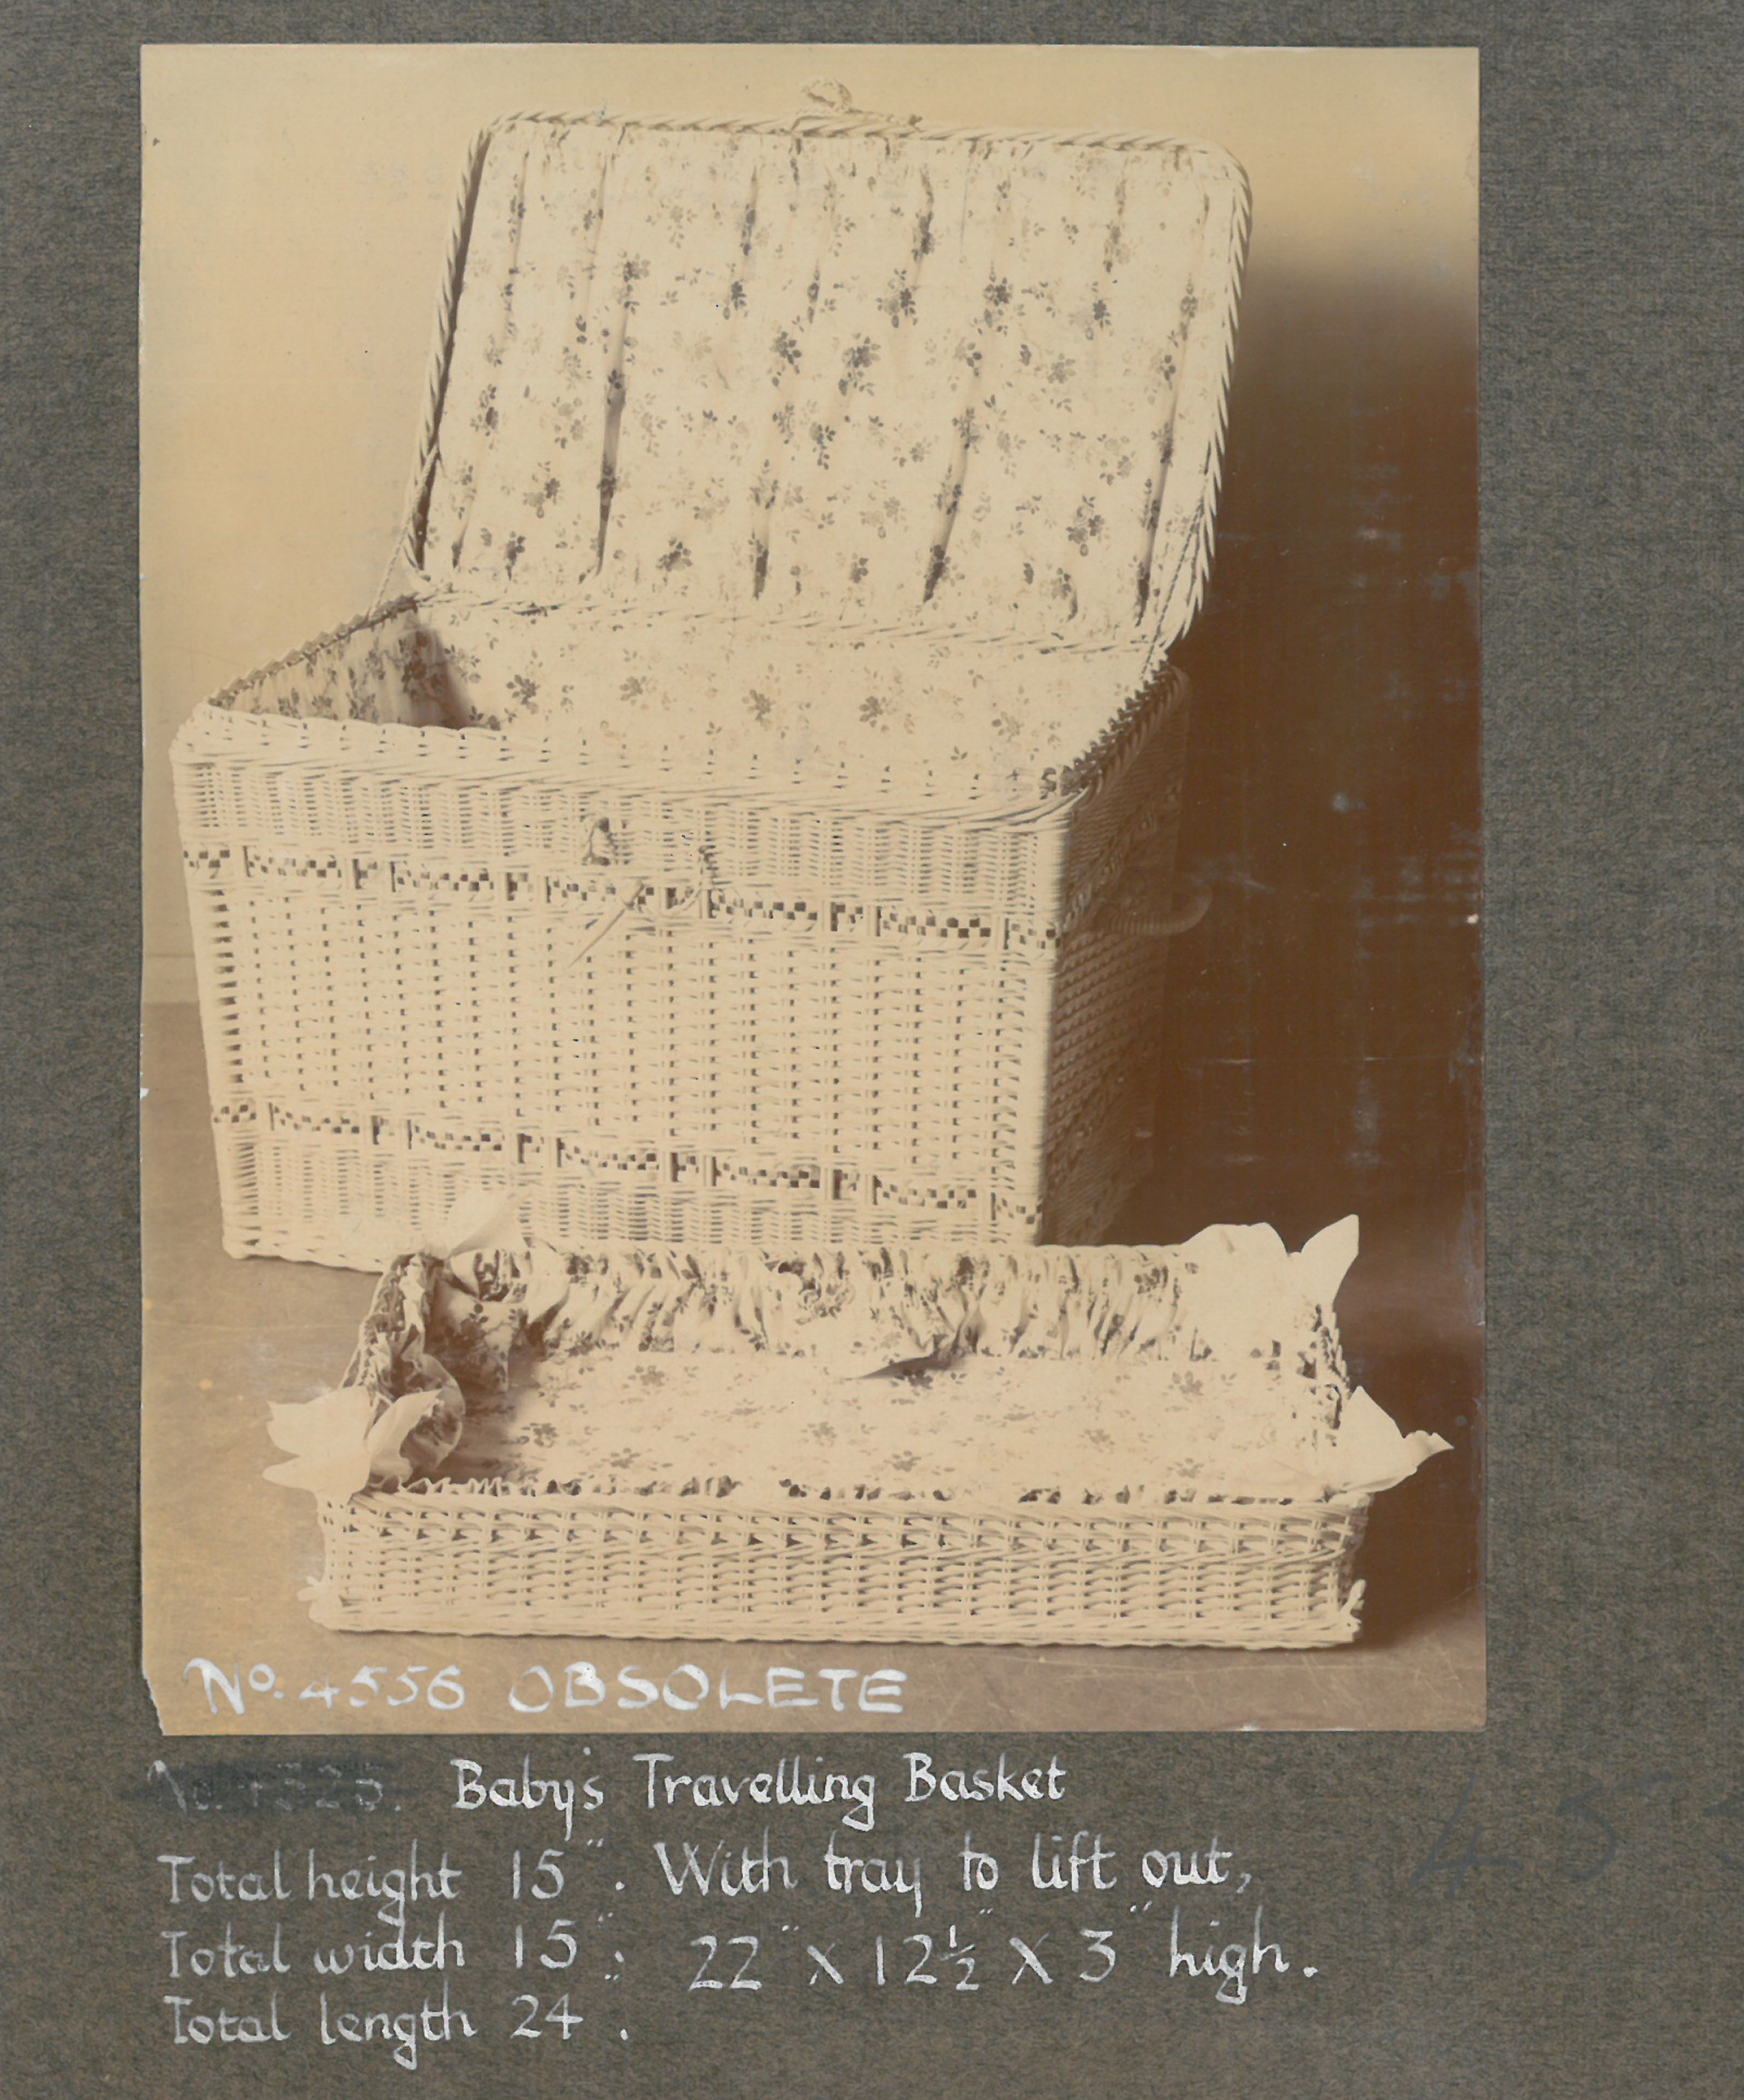 No. 4556 OBSOLETE
Baby's Travelling Basket
Total height 15". With tray to lift out,
Total width 15"; 22" x 12½" x 3" high.
Total length 24".